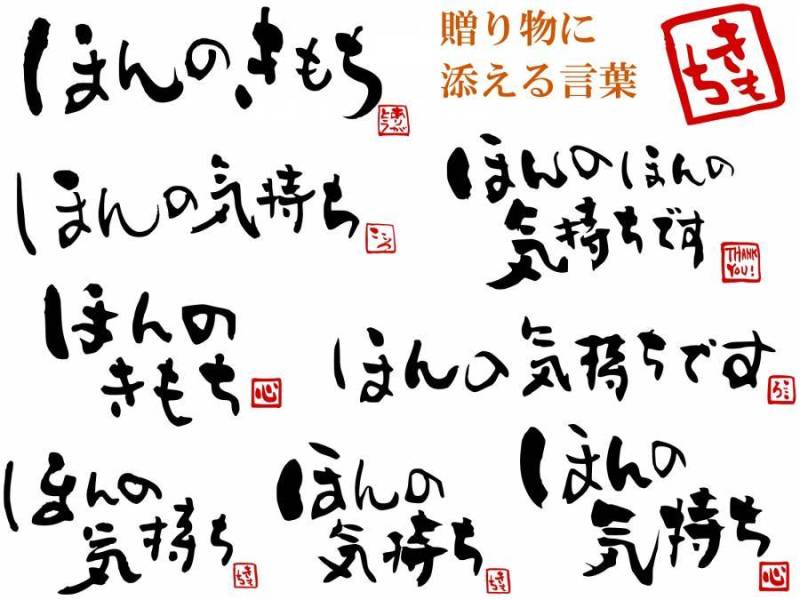 ほんのきもち
ありが
とう
贈り物に
添える言葉
きも
ち
ほんの気持ち
こころ
ほんのほんの
気持ちです
THANK
YOU!
ほんの
きもち
心
ほんの気持ちです
こころ
ほんの
気持ち
きも
ち
ほんの
気持ち
きも
ち
ほんの
気持ち
心